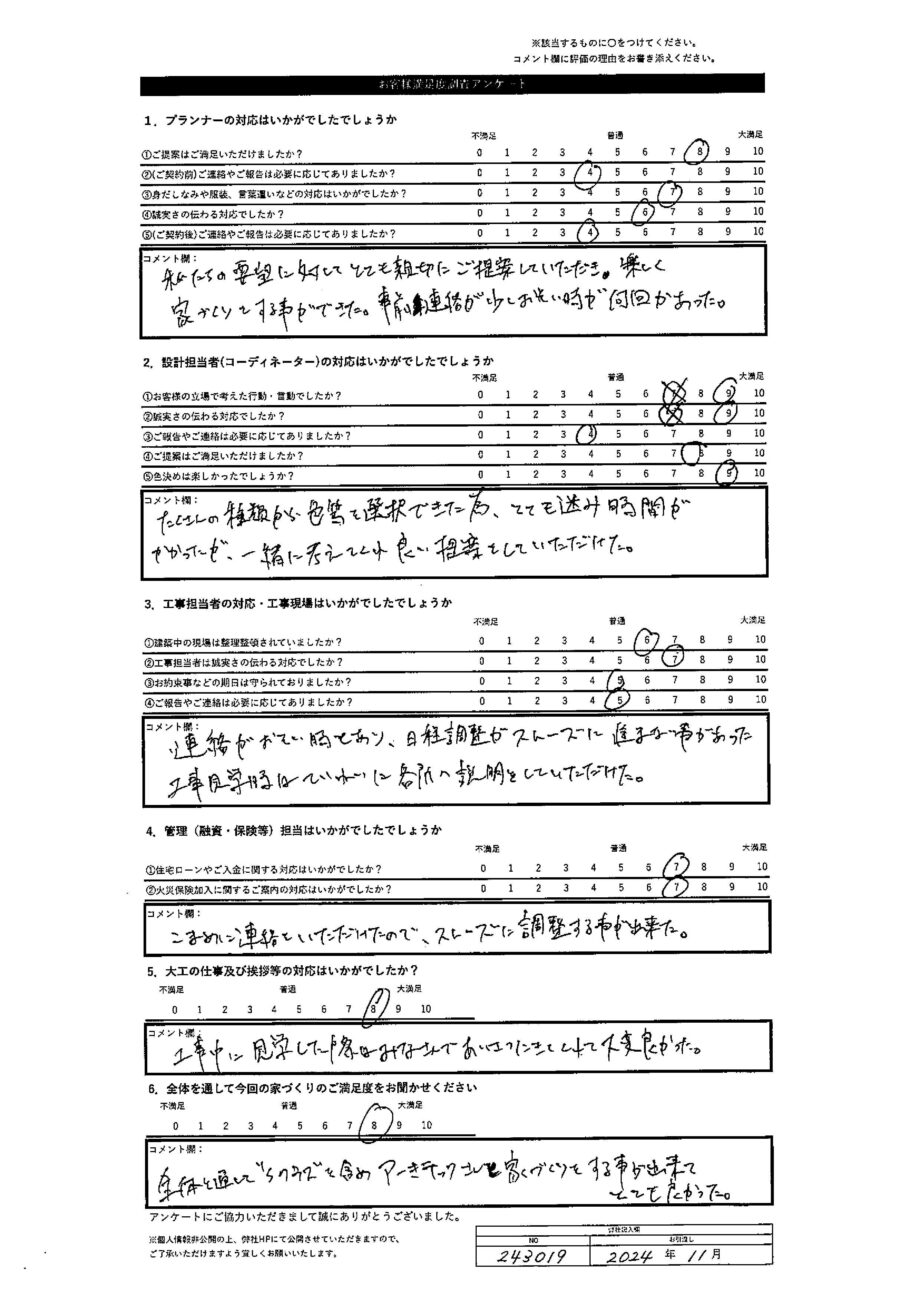 ※該当するものに○をつけてください。
コメント欄に評価の理由をお書き添えください。
お客様満足度調査アンケート
1．プランナーの対応はいかがでしたでしょうか
不満足 普通 大満足
①ご提案はご満足いただけましたか？ 0 1 2 3 4 5 6 7 8 9 10
②(ご契約前)ご連絡やご報告は必要に応じてありましたか？ 0 1 2 3 4 5 6 7 8 9 10
③身だしなみや服装、言葉遣いなどの対応はいかがでしたか？ 0 1 2 3 4 5 6 7 8 9 10
④誠実さの伝わる対応でしたか？ 0 1 2 3 4 5 6 7 8 9 10
⑤(ご契約後)ご連絡やご報告は必要に応じてありましたか？ 0 1 2 3 4 5 6 7 8 9 10
コメント欄：
私たちの要望に対してとても親切にご提案していただき。楽しく
家づくりをする事ができた。事前連絡が少しおそい時が何回かあった。
2．設計担当者(コーディネーター)の対応はいかがでしたでしょうか
不満足 普通 大満足
①お客様の立場で考えた行動・言動でしたか？ 0 1 2 3 4 5 6 7 8 9 10
②誠実さの伝わる対応でしたか？ 0 1 2 3 4 5 6 8 9 10
③ご報告やご連絡は必要に応じてありましたか？ 0 1 2 3 4 5 6 7 8 9 10
④ご提案はご満足いただけましたか？ 0 1 2 3 4 5 6 7 8 9 10
⑤色決めは楽しかったでしょうか？ 0 1 2 3 4 5 6 7 8 9 10
コメント欄：
たくさんの種類から色等を選択できた為、とても迷み時間が
かかったが、一緒に考えてくれ良い提案をしていただけた。
3．工事担当者の対応・工事現場はいかがでしたでしょうか
不満足 普通 大満足
①建築中の現場は整理整頓されていましたか？ 0 1 2 3 4 5 6 7 8 9 10
②工事担当者は誠実さの伝わる対応でしたか？ 0 1 2 3 4 5 6 7 8 9 10
③お約束事などの期日は守られておりましたか？ 0 1 2 3 4 5 6 7 8 9 10
④ご報告やご連絡は必要に応じてありましたか？ 0 1 2 3 4 5 6 7 8 9 10
コメント欄：
連絡がおそい時もあり、日程調整がスムーズに進まない事があった
工事見学時はていねいに各所の説明をしていただけた。
4．管理（融資・保険等）担当はいかがでしたでしょうか
不満足 普通 大満足
①住宅ローンやご入金に関する対応はいかがでしたか？ 0 1 2 3 4 5 6 7 8 9 10
②火災保険加入に関するご案内の対応はいかがでしたか？ 0 1 2 3 4 5 6 7 8 9 10
コメント欄：
こまめに連絡をいただけたので、スムーズに調整する事が出来た。
5．大工の仕事及び挨拶等の対応はいかがでしたか？
不満足 普通 大満足
0 1 2 3 4 5 6 7 8 9 10
コメント欄：
工事中に見学した際はみなさんであいさつにきてくれて大変良かった。
6．全体を通して今回の家づくりのご満足度をお聞かせください
不満足 普通 大満足
0 1 2 3 4 5 6 7 8 9 10
コメント欄：
全体を通して を含めアーキテックさんと家づくりをする事が出来て
とても良かった。
アンケートにご協力いただきまして誠にありがとうございました。
※個人情報非公開の上、弊社HPにて公開させていただきますので、
ご了承いただけますよう宜しくお願いいたします。
弊社記入欄
NO お引渡し
243019 2024 年 11 月